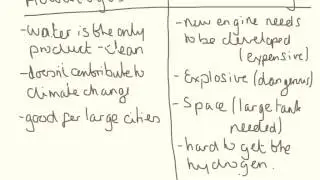 -water is the only
product - clean
-doesn't contribute to
climate change
-good for large cities
-new engine needs
to be developed
(expensive)
-Explosive (dangerous)
-Space (large tank
needed)
-hard to get the
hydrogen.